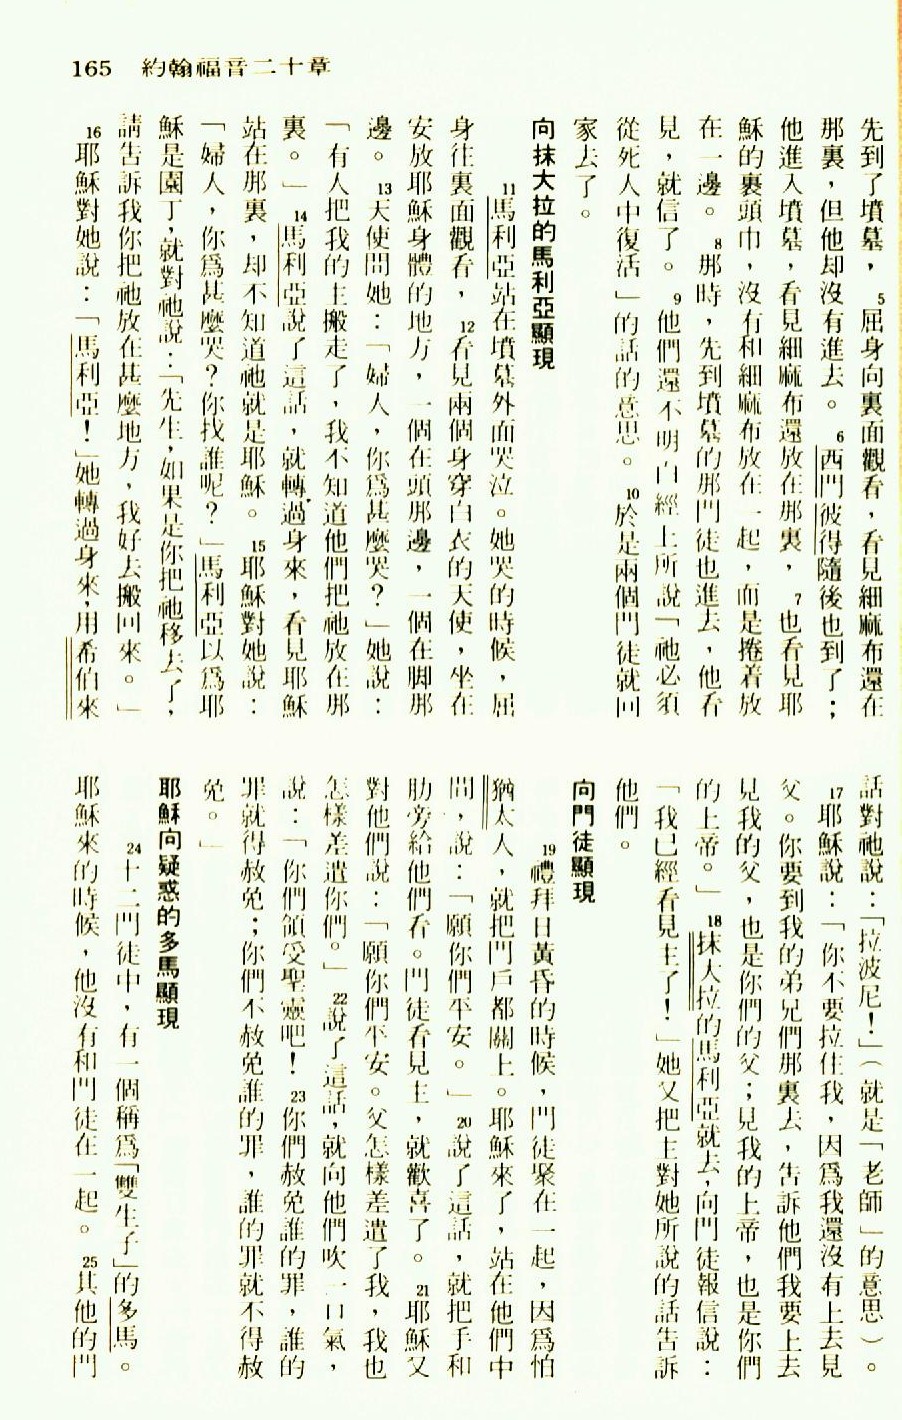 165 約翰福音二十章
先到了墳墓，5屈身向裏面觀看，看見細麻布還在
那裏，但他却沒有進去。6西門彼得隨後也到了；
他進入墳墓，看見細麻布還放在那裏，7也看見耶
穌的裹頭巾，沒有和細麻布放在一起，而是捲着放
在一邊。8那時，先到墳墓的那門徒也進去，他看
見，就信了。9他們還不明白經上所說「祂必須
從死人中復活」的話的意思。10於是兩個門徒就回
家去了。
向抹大拉的馬利亞顯現
11馬利亞站在墳墓外面哭泣。她哭的時候，屈
身往裏面觀看，12看見兩個身穿白衣的天使，坐在
安放耶穌身體的地方，一個在頭那邊，一個在脚那
邊。13天使問她：「婦人，你爲甚麼哭？」她說：
「有人把我的主搬走了，我不知道他們把祂放在那
裏。」14馬利亞說了這話，就轉過身來，看見耶穌
站在那裏，却不知道祂就是耶穌。15耶穌對她說：
「婦人，你爲甚麼哭？你找誰呢？」馬利亞以爲耶
穌是園丁，就對祂說：「先生，如果是你把祂移去了，
請告訴我你把祂放在甚麼地方，我好去搬回來。」
16耶穌對她說：「馬利亞！」她轉過身來，用希伯來
話對祂說：「拉波尼！」（就是「老師」的意思）。
17耶穌說：「你不要拉住我，因爲我還沒有上去見
父。你要到我的弟兄們那裏去，告訴他們我要上去
見我的父，也是你們的父；見我的上帝，也是你們
的上帝。」18抹大拉的馬利亞就去，向門徒報信說：
「我已經看見主了！」她又把主對她所說的話告訴
他們。
向門徒顯現
19禮拜日黃昏的時候，門徒聚在一起，因爲怕
猶太人，就把門戶都關上。耶穌來了，站在他們中
間，說：「願你們平安。」20說了這話，就把手和
肋旁給他們看。門徒看見主，就歡喜了。21耶穌又
對他們說：「願你們平安。父怎樣差遣了我，我也
怎樣差遣你們。」22說了這話，就向他們吹一口氣，
說：「你們領受聖靈吧！23你們赦免誰的罪，誰的
罪就得赦免；你們不赦免誰的罪，誰的罪就不得赦
免。」
耶穌向疑惑的多馬顯現
24十二門徒中，有一個稱爲「雙生子」的多馬。
耶穌來的時候，他沒有和門徒在一起。25其他的門